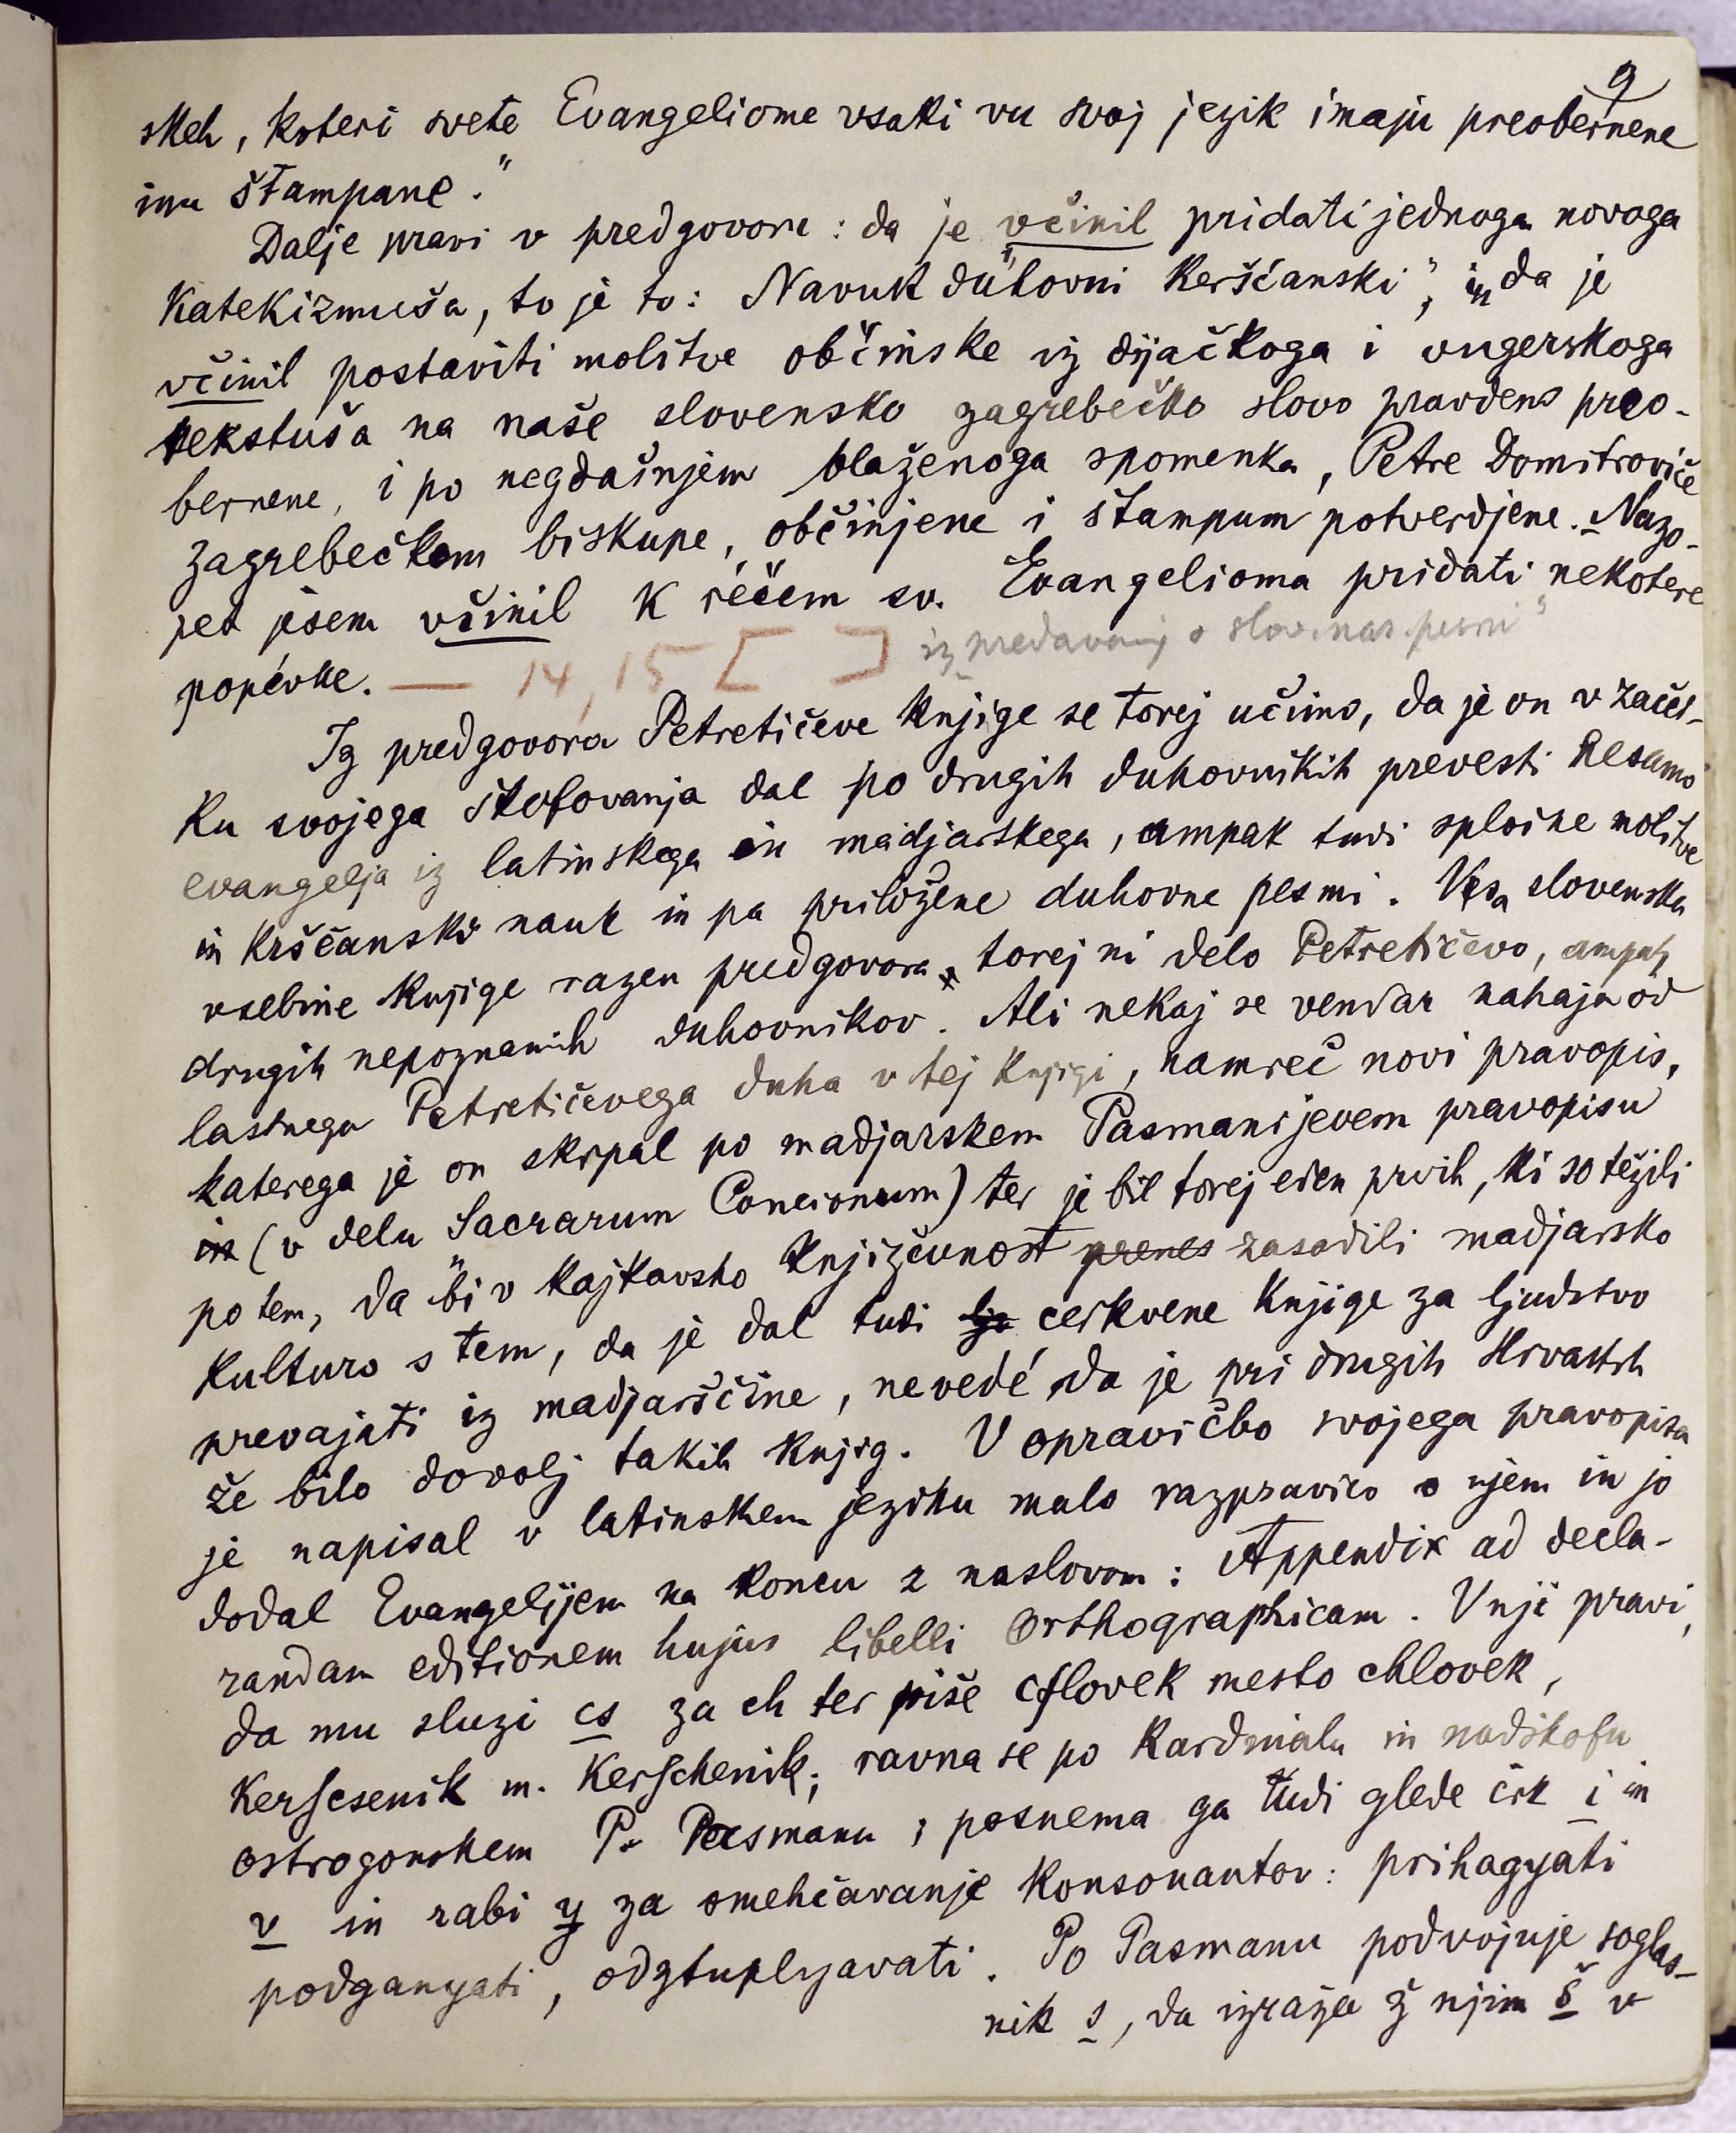 9
skeh, koteri svete Evangeliome vsaki vu svoj jezik imaju preobernene
inu štampane."
Dalje pravi v predgovoru: da je včinil pridati jednoga novoga
Katekizmuša, to je to: "Navuk duhovni Kerščanski", in da je
včinil postaviti molitve občinske iz dijačkoga i vugerskoga
tekstuša na naše slovensko zagrebečko slovo pravdeno preo-
bernene, i po negdašnjem blaženoga spomenka, Petre Domitroviče
zagrebečkom biskupe, občinjene i štampum potverdjene. Nazo-
pet jesem včinil k rečem sv. Evangelioma pridati nekotere
popévke. — 14, 15 [ ] iz predavanj o slov. nar. pesmi"
Iz predgovora Petretičeve knjige se torej učimo, da je on v začet-
ku svojega škofovanja dal po drugih duhovnikih prevesti nesamo
evangelja iz latinskega in madjarskega, ampak tudi splošne molitve
in krščanski nauk in pa priložene duhovne pesmi. Vsa slovenska
vsebine knjige razen predgovora torej ni delo Petretičevo, ampak
drugih nepoznanih duhovnikov. Ali nekaj se vendar nahaja od
lastnega Petretičevega duha v tej knjigi, namreč novi pravopis,
katerega je on skrpal po madjarskem Pasmanijevem pravopisu
in (v delu Sacrarum Concionum) ter je bil torej eden prvih, ki so težili
po tem, da bi v kajkavsko književnost prenes zasadili madjarsko
kulturo s tem, da je dal tudi lju cerkvene knjige za ljudstvo
prevajati iz madjarščine, nevedé, da je pri drugih Hrvatih
že bilo dovolj takih knjig. V opravičbo svojega pravopisa
je napisal v latinskem jeziku malo razpravico o njem in jo
dodal Evangelijem na koncu z naslovom: Appendix ad decla-
randam editionem hujus libelli Orthographicam. V nji pravi,
da mu sluzi cs za ch ter piše cſlovek mesto chlovek,
Kerſcsenik m. Kerſchenik; ravna se po Kardinalu in nadškofu
ostrogonskem P. Pasmanu; posnema ga tudi glede črk i in
v in rabi y za omehčavanje konsonantov: prihagyati
podganyati, odztuplyavati. Po Pasmanu podvojuje soglas-
nik s, da izraža ž njim š v